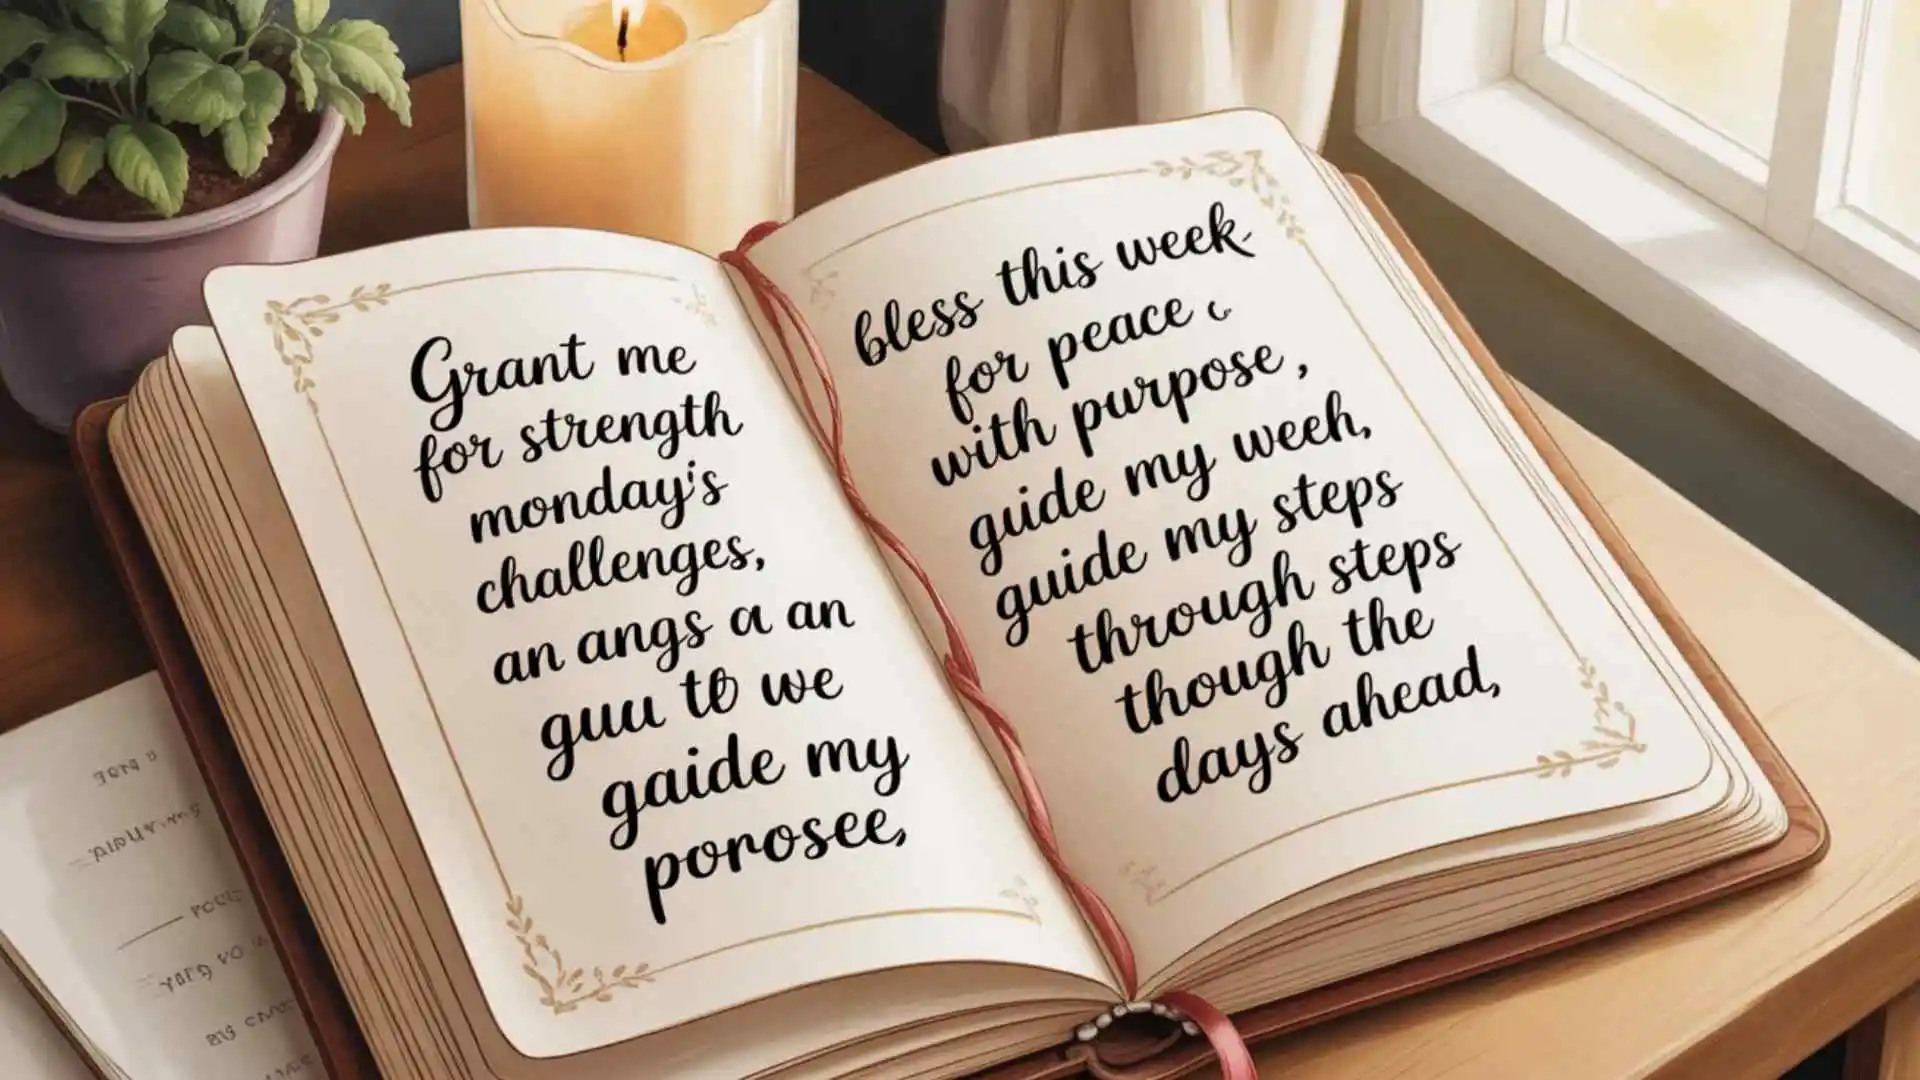 Grant me
for strength
monday's
challenges,
an angs a an
guu to we
gaide my
porosee,
bless this week
for peace
with purpose,
guide my week,
guide my steps
through steps
though the
days ahead,